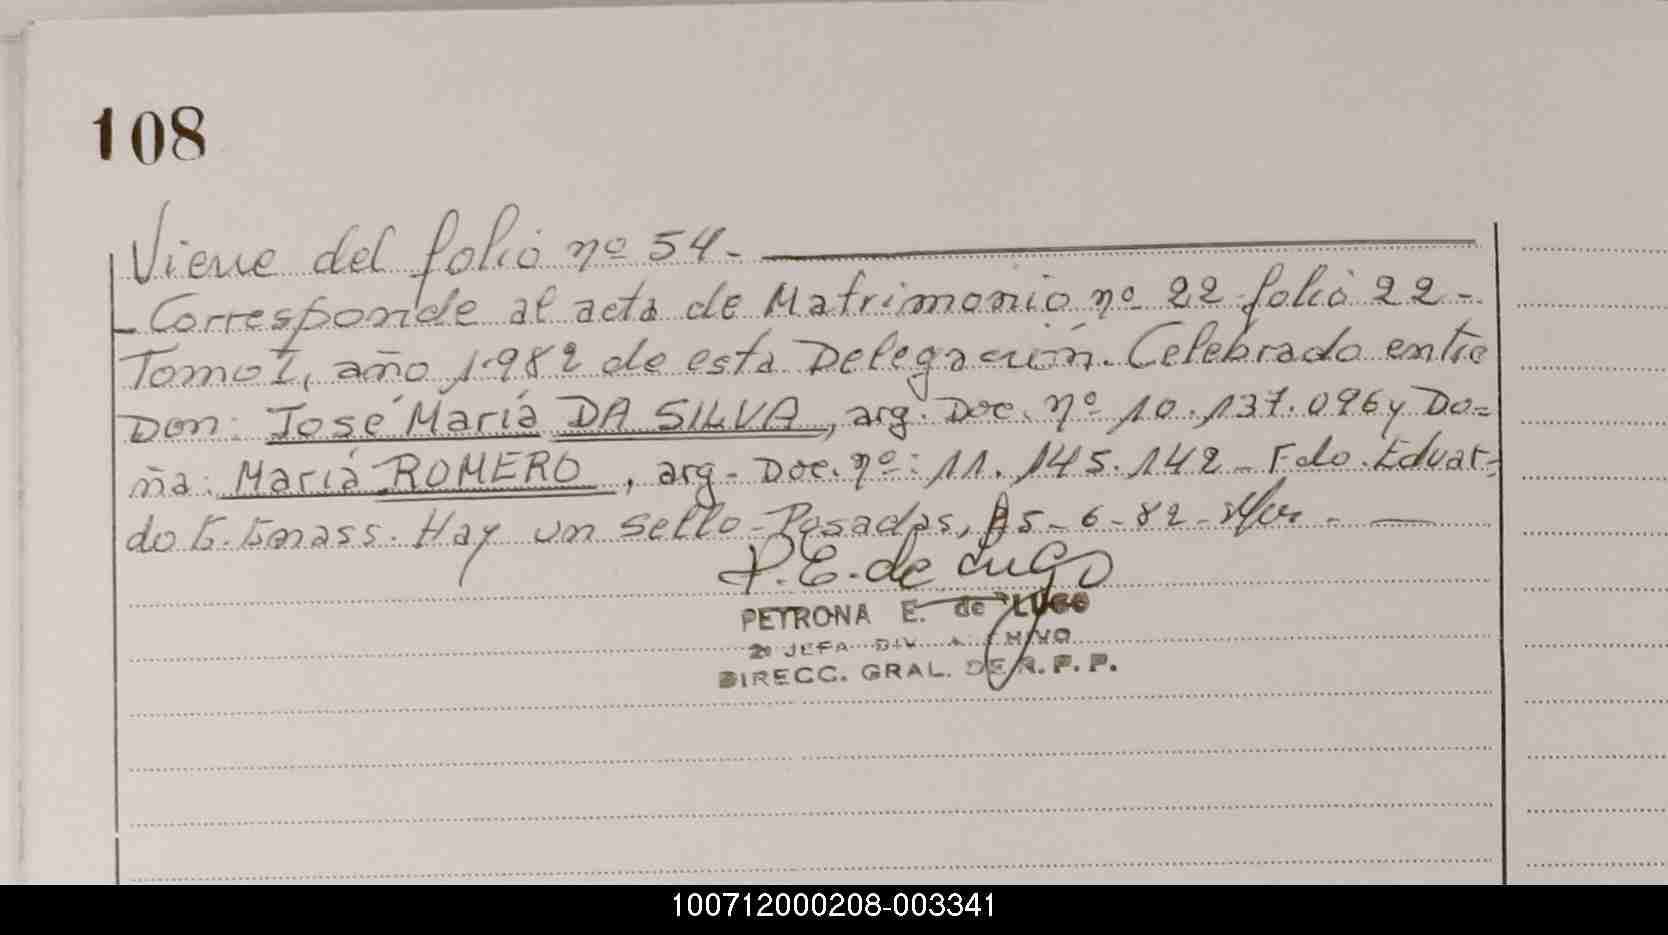 108
Viene del folio nº 54.-
- Corresponde al acta de Matrimonio nº 22 folio 22-
Tomo I, año 1.982 de esta Delegación. Celebrado entre
Don: José María DA SILVA, arg. Doc. nº 10.137.096 y Do=
ña: María ROMERO, arg- Doc. nº: 11.145.142- Fdo. Eduar=
do E. Emass. Hay un sello- Posadas, 5-6-82-
P. E. de Lugo
PETRONA E. de LUGO
2º JEFA DIV. ARCHIVO
DIRECC. GRAL. DE R. P. P.
100712000208-003341